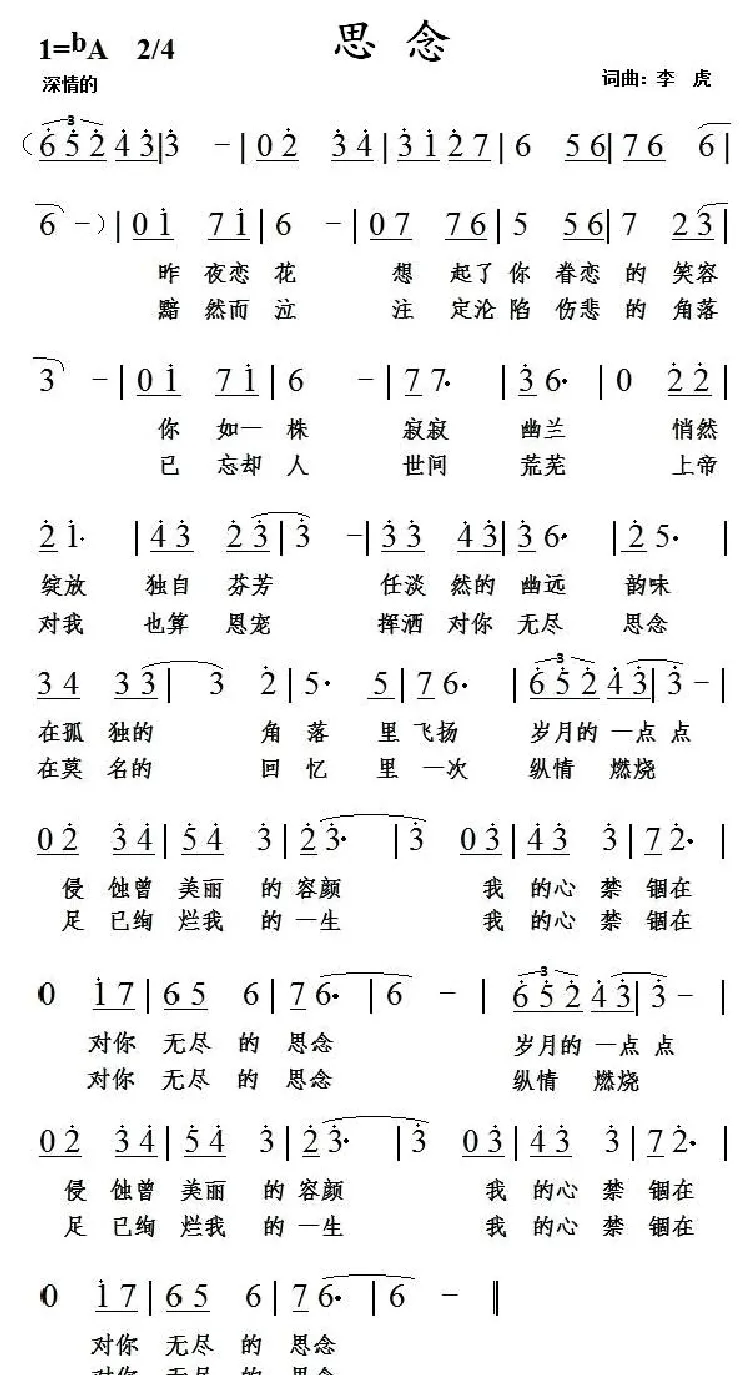 思 念
1=bA 2/4
深情的
词曲：李 虎
(6 5 2 4 3|3 -|0 2 3 4|3 1 2 7|6 5 6|7 6 6|
6 -)|0 1 7 1|6 -|0 7 7 6|5 5 6|7 2 3|
昨 夜恋 花 想 起了 你 眷恋 的 笑容
黯 然而 泣 注 定沦 陷 伤悲 的 角落
3 -|0 1 7 1|6 -|7 7·|3 6·|0 2 2|
你 如一 株 寂寂 幽兰 悄然
已 忘却 人 世间 荒芜 上帝
2 1·|4 3 2 3|3 -|3 3 4 3|3 6·|2 5·|
绽放 独自 芬芳 任淡 然的 幽远 韵味
对我 也算 恩宠 挥洒 对你 无尽 思念
3 4 3 3| 3 2|5· 5|7 6·|6 5 2 4 3|3 -|
在孤 独的 角 落 里 飞扬 岁月的 一点 点
在莫 名的 回 忆 里 一次 纵情 燃烧
0 2 3 4|5 4 3|2 3·|3 0 3|4 3 3|7 2·|
侵 蚀曾 美丽 的 容颜 我 的心 禁 锢在
足 已绚 烂我 的 一生 我 的心 禁 锢在
0 1 7|6 5 6|7 6·|6 -|6 5 2 4 3|3 -|
对你 无尽 的 思念 岁月的 一点 点
对你 无尽 的 思念 纵情 燃烧
0 2 3 4|5 4 3|2 3·|3 0 3|4 3 3|7 2·|
侵 蚀曾 美丽 的 容颜 我 的心 禁 锢在
足 已绚 烂我 的 一生 我 的心 禁 锢在
0 1 7|6 5 6|7 6·|6 -‖
对你 无尽 的 思念
对你 无尽 的 思念